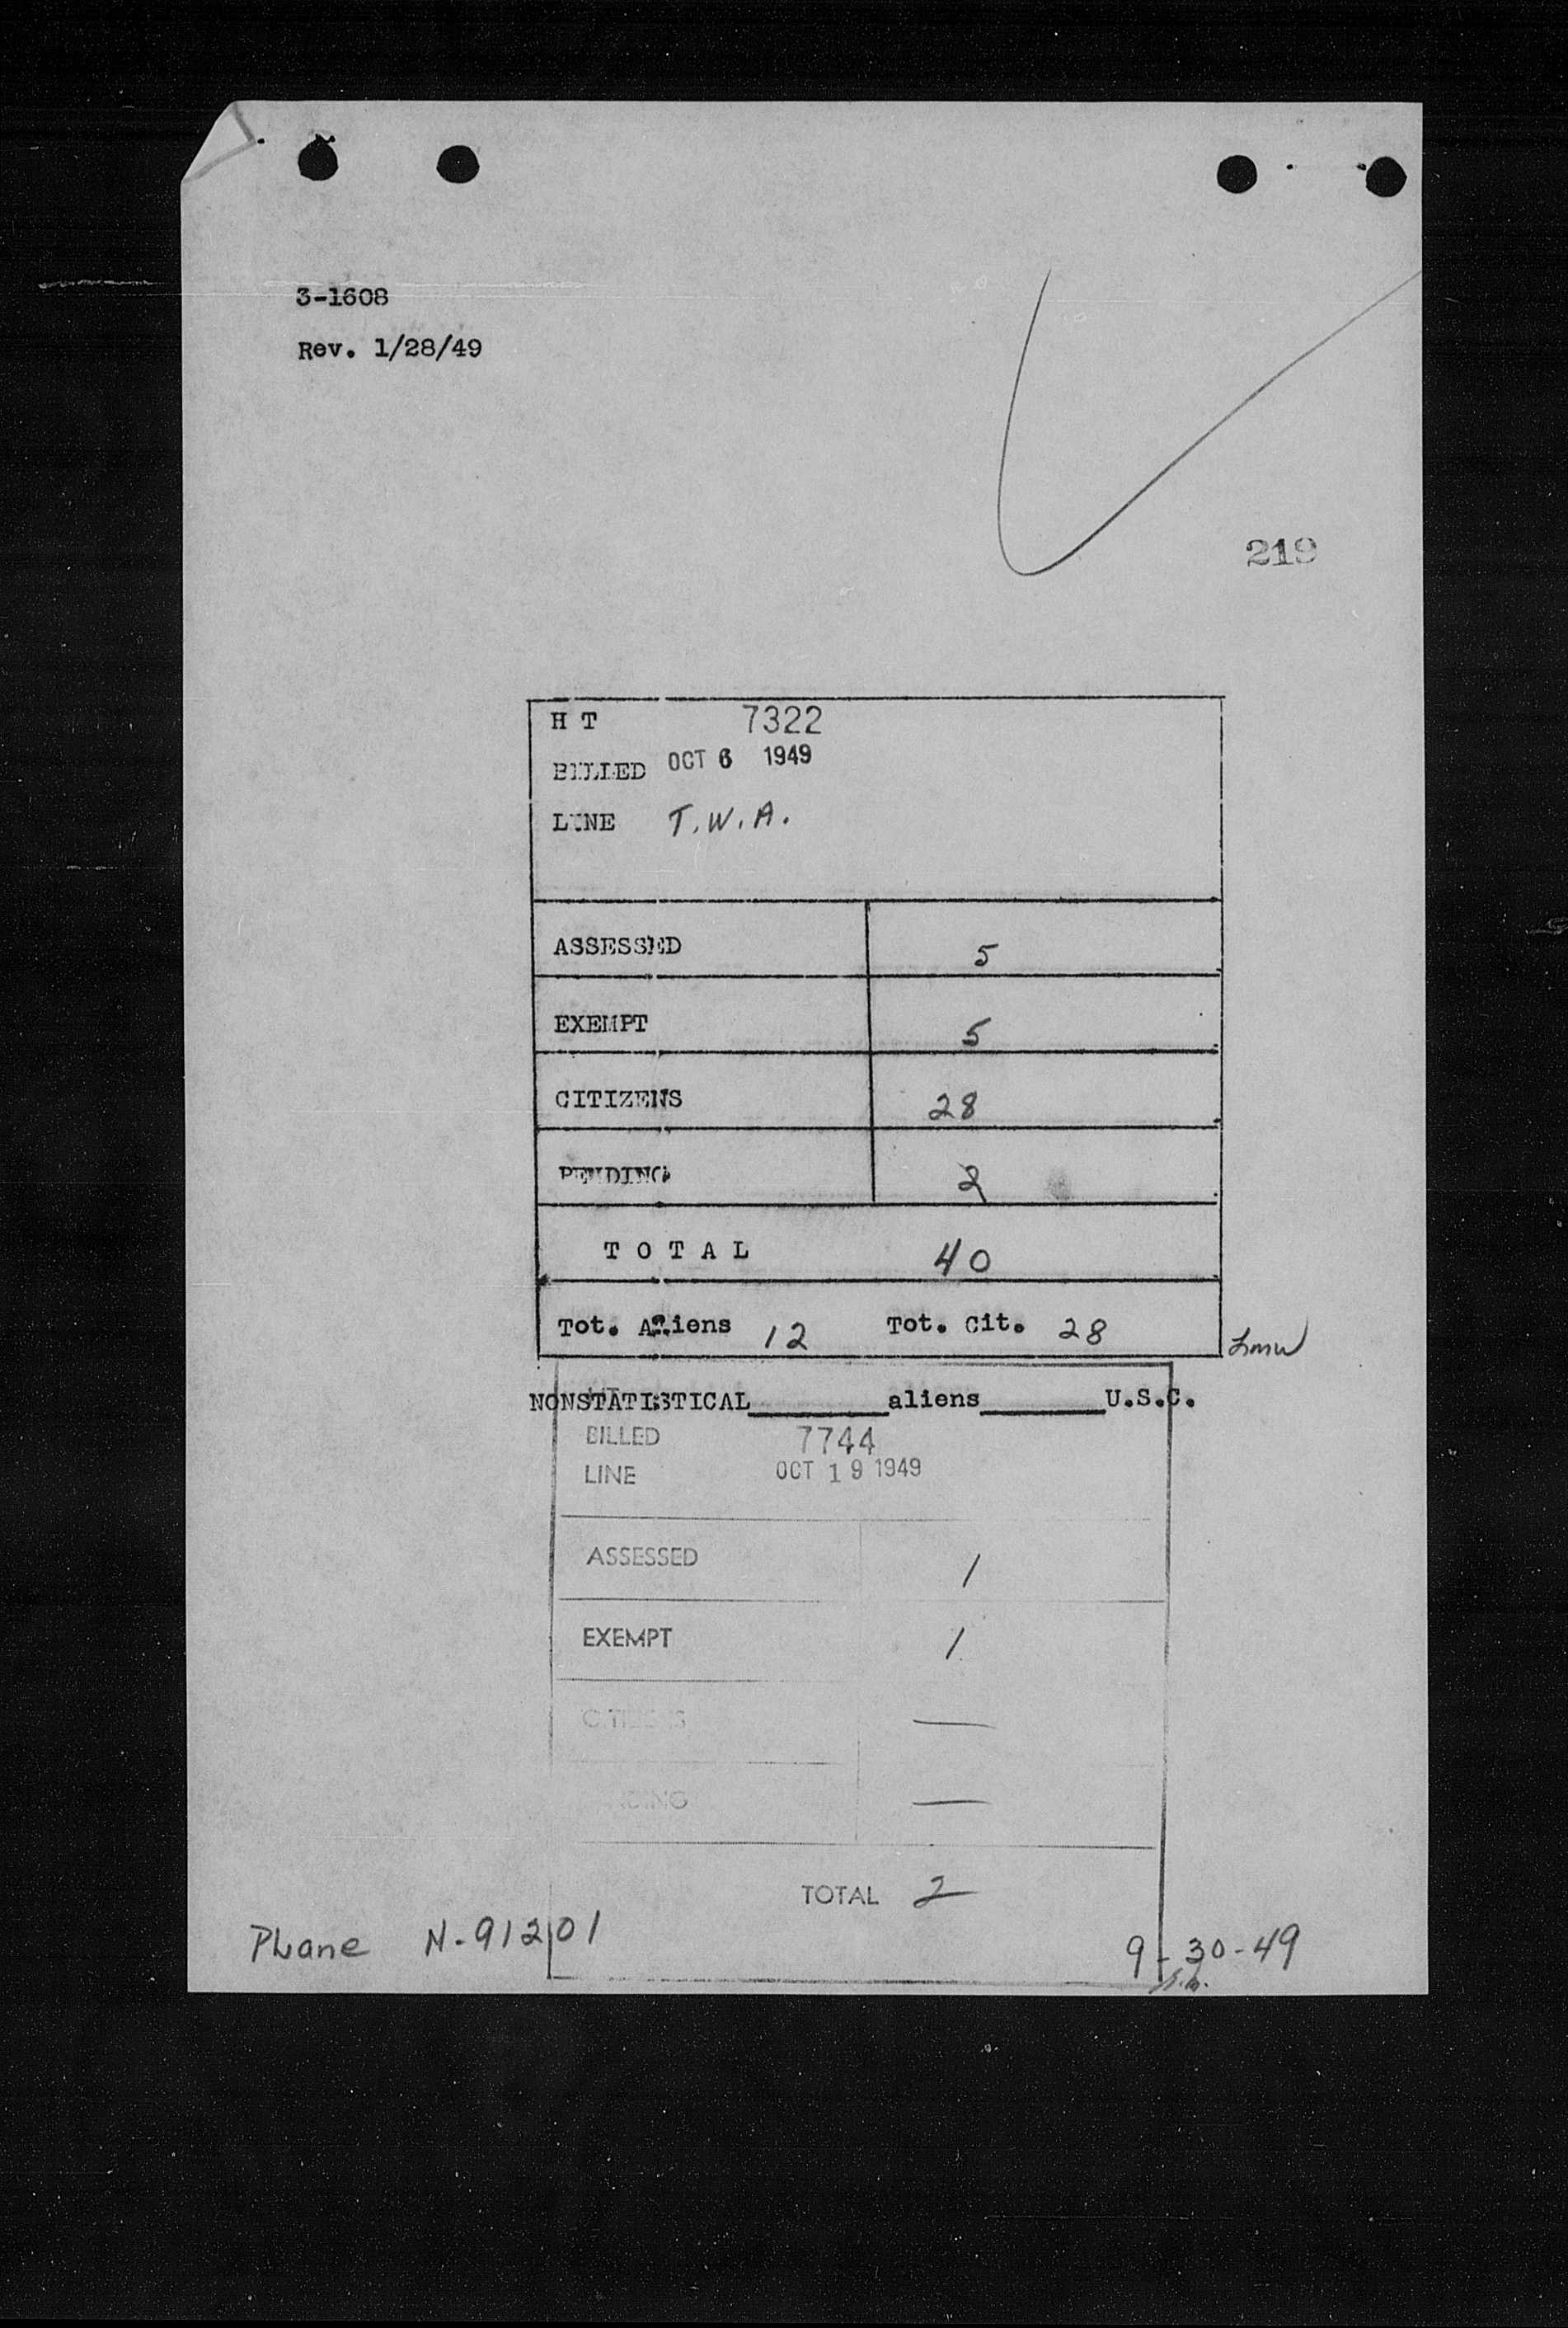 3-1608
Rev. 1/28/49
219
H T 7322
BILLED OCT 6 1949
LINE T.W.A.
ASSESSED 5
EXEMPT 5
CITIZENS 28
PENDING 2
TOTAL 40
Tot. Aliens 12 Tot. Cit. 28
NONSTATISTICAL________aliens________U.S.C.
BILLED 7744
LINE OCT 19 1949
ASSESSED 1
EXEMPT 1
CITIZENS —
PENDING —
TOTAL 2
Plane N-91201 9-30-49